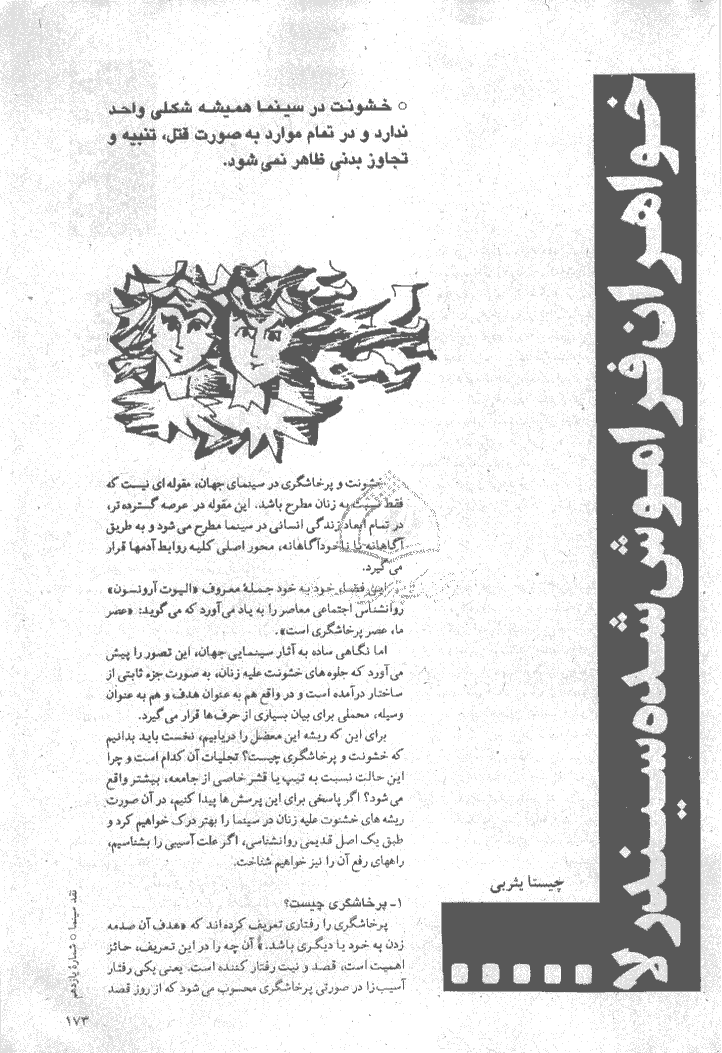 خواهران فراموش شده سیندرلا
○ خشونت در سینما همیشه شکلی واحد
ندارد و در تمام موارد به صورت قتل، تنبیه و
تجاوز بدنی ظاهر نمی‌شود.
چیستا یثربی
خشونت و پرخاشگری در سینمای جهان، مقوله‌ای نیست که
فقط نسبت به زنان مطرح باشد. این مقوله در عرصه گسترده‌تر،
در تمام ابعاد زندگی انسانی در سینما مطرح می‌شود و به طریق
آگاهانه یا ناخودآگاهانه، محور اصلی کلیه روابط آدمها قرار
می‌گیرد.
این خود به خود جملهٔ معروف «الیوت آرونسون»
روانشناس اجتماعی معاصر را به یاد می‌آورد که می‌گوید: «عصر
ما، عصر پرخاشگری است».
اما نگاهی ساده به آثار سینمایی جهان، این تصور را پیش
می‌آورد که جلوه‌های خشونت علیه زنان، به صورت جزء ثابتی از
ساختار درآمده است و در واقع هم به عنوان هدف و هم به عنوان
وسیله، محملی برای بیان بسیاری از حرف‌ها قرار می‌گیرد.
برای این که ریشه این معضل را دریابیم، نخست باید بدانیم
که خشونت و پرخاشگری چیست؟ تجلیات آن کدام است و چرا
این حالت نسبت به تیپ یا قشر خاصی از جامعه، بیشتر واقع
می‌شود؟ اگر پاسخی برای این پرسش‌ها پیدا کنیم، در آن صورت
ریشه‌های خشنوت علیه زنان در سینما را بهتر درک خواهیم کرد و
طبق یک اصل قدیمی روانشناسی، اگر علت آسیبی را بشناسیم،
راههای رفع آن را نیز خواهیم شناخت.
۱- پرخاشگری چیست؟
پرخاشگری را رفتاری تعریف کرده‌اند که «هدف آن صدمه
زدن به خود یا دیگری باشد.» آن چه را در این تعریف، حائز
اهمیت است، قصد و نیت رفتار کننده است. یعنی یکی رفتار
آسیب‌زا در صورتی پرخاشگری محسوب می‌شود که از روز قصد
نقد سینما ○ شمارهٔ یازدهم
۱۷۳